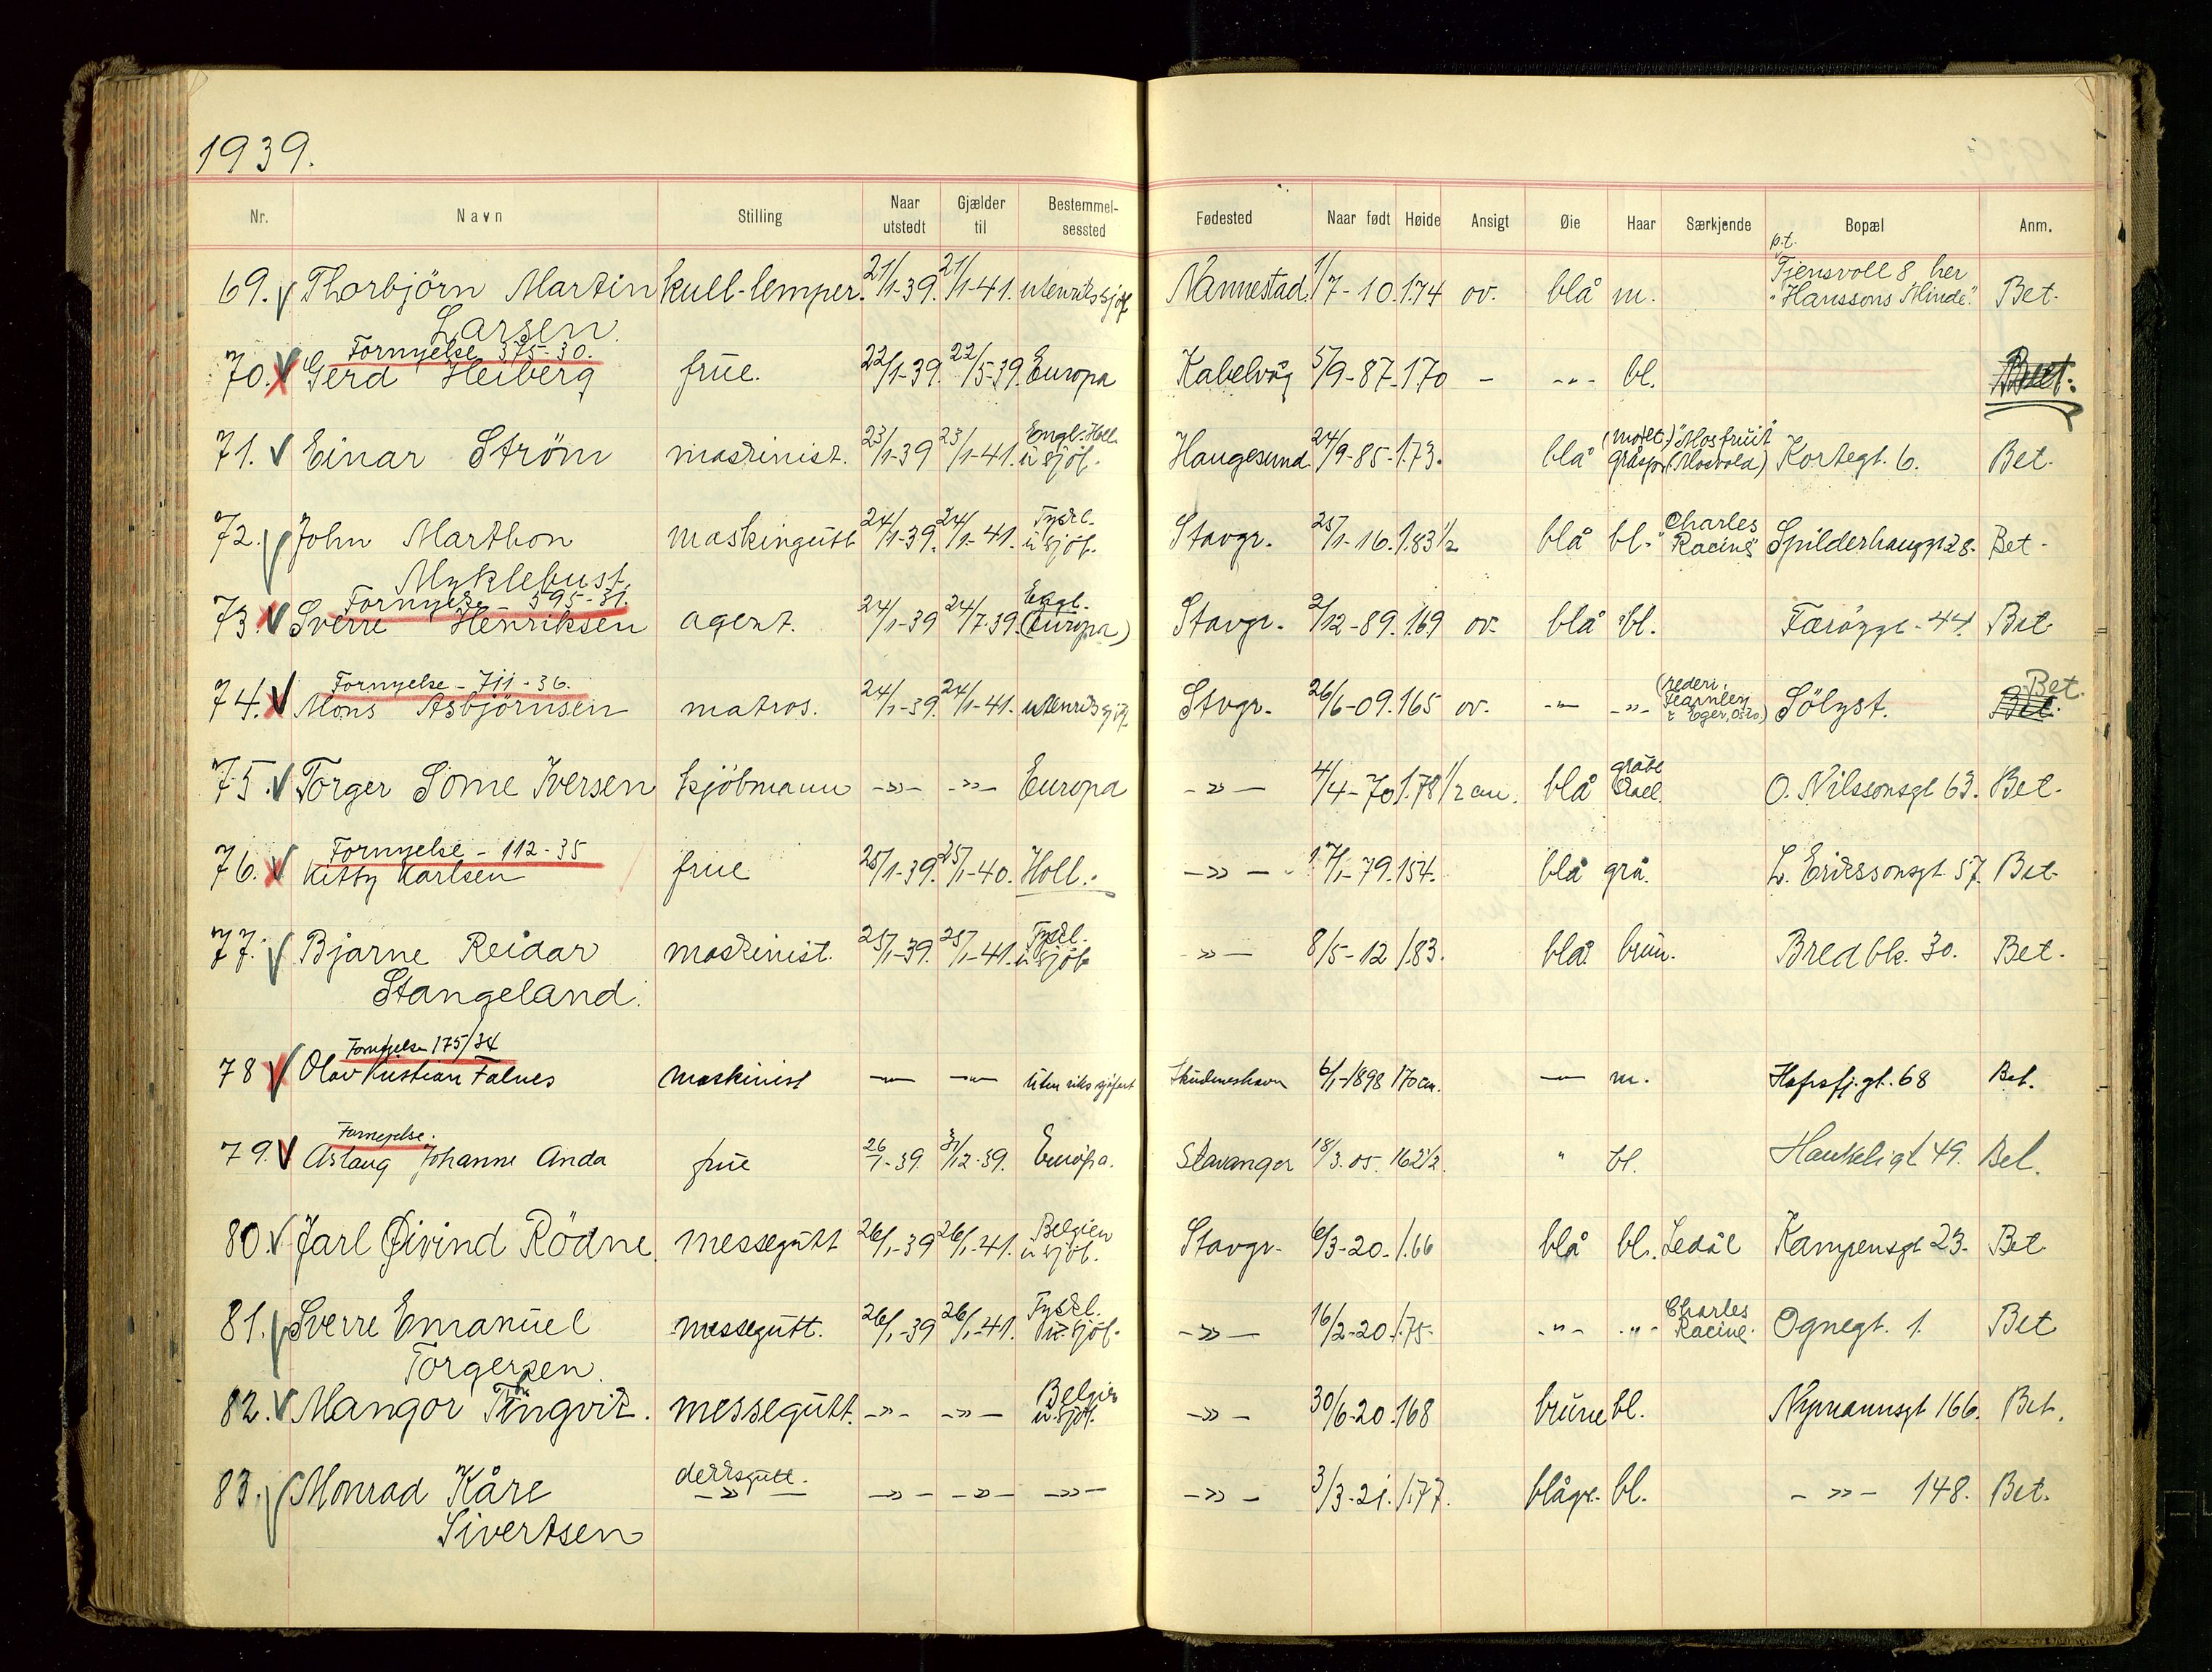 1939.
Nr. Navn Stilling Naar utstedt Gjælder til Bestemmelsessted Fødested Naar født Høide Ansigt Øie Haar Særkjende Bopæl Anm.
69. Thorbjörn Martin kull-lemper. 21/1-39. 21/1-41. utenriks sjöf. Nannestad 1/7-10. 1.74 ov. blå m. p.t. Tjensvoll 8 her "Hanssons Minde." Bet.
Larsen.
Fornyelse 375-30.
70. Gerd Heiberg frue. 22/1-39. 22/5-39. Europa Kabelvåg 5/9-87. 170 - -"- bl. Bet.
71. Einar Ström maskinist. 23/1-39 23/1-41. Engl. Holl. u. sjöf. Haugesund 24/9-85. 1.73. blå gråspr. "Mosfruit" (Mosvold) Kortegt. 6. Bet.
72. John Marthon maskingutt 24/1-39. 24/1-41. Tyskl. u. sjöf. Stavgr. 25/1-16. 1.83 1/2 blå bl. "Charles Racine" Spilderhauggt 28. Bet.
Myklebust.
Fornyelse - 595-31.
73. Sverre Henriksen agent. 24/1-39 24/7-39. Engl. (Europa) Stavgr. 2/12-89. 169 ov. blå bl. Færöygt. 44. Bet.
Fornyelse - 711-36.
74. Mons Asbjörnsen matros. 24/1-39. 24/1-41. utenriks sjöf. Stvgr. 26/6-09. 165 ov. -"- -"- (rederi, Fearnley & Eger, Oslo.) Sölyst. Bet. Bet.
75. Torger Some Iversen kjöbmann -»- -»- Europa -»- 4/4-70 1.78 1/2 cm. blå O. Nilssonsgt 63. Bet.
Fornyelse - 112-35
76. Kitty Karlsen frue 25/1-39. 25/1-40. Holl. -»- 17/1-79. 154. blå grå. L. Erikssonsgt. 57. Bet.
77. Bjarne Reidar maskinist. 25/1-39. 25/1-41. Tyskl. u. sjöf. -»- 8/5-12 1.83. blå brun. Bredbk. 30. Bet.
Stangeland.
Fornyelse 175/34
78 Olav Kristian Falnes maskinist -"- -"- utenriks sjöfart Skudeneshavn 6/1-1898 170 cm. -"- m. Hafrsfj.gt. 68 Bet.
Fornyelse.
79. Aslaug Johanne Anda frue 26/1-39. 31/12-39. Europa. Stavanger 18/3.05. 162 1/2. " bl. Haukeligt 49. Bet.
80. Jarl Øivind Rödne. messegutt 26/1-39 26/1-41. Belgien u. sjöf. Stavgr. 6/3-20. 1.66 blå bl. Ledål Kampensgt 23. Bet
81. Sverre Emanuel messegutt. 26/1-39 26/1-41. Tyskl. u. sjöf. -»- 16/2-20. 1.75. -"- -"- Charles Racine. Ognegt. 1. Bet
Torgersen.
82. Mangor Tingvik. messegutt. -»- -»- Belgien u. sjöf. -»- 30/6-20. 168 brune bl. Nymannsgt 166. Bet.
83. Monrad Kåre dekksgutt. -»- -»- -»- -»- -»- 3/3-21. 1.77. blågr. bl. -»- 148. Bet.
Sivertsen